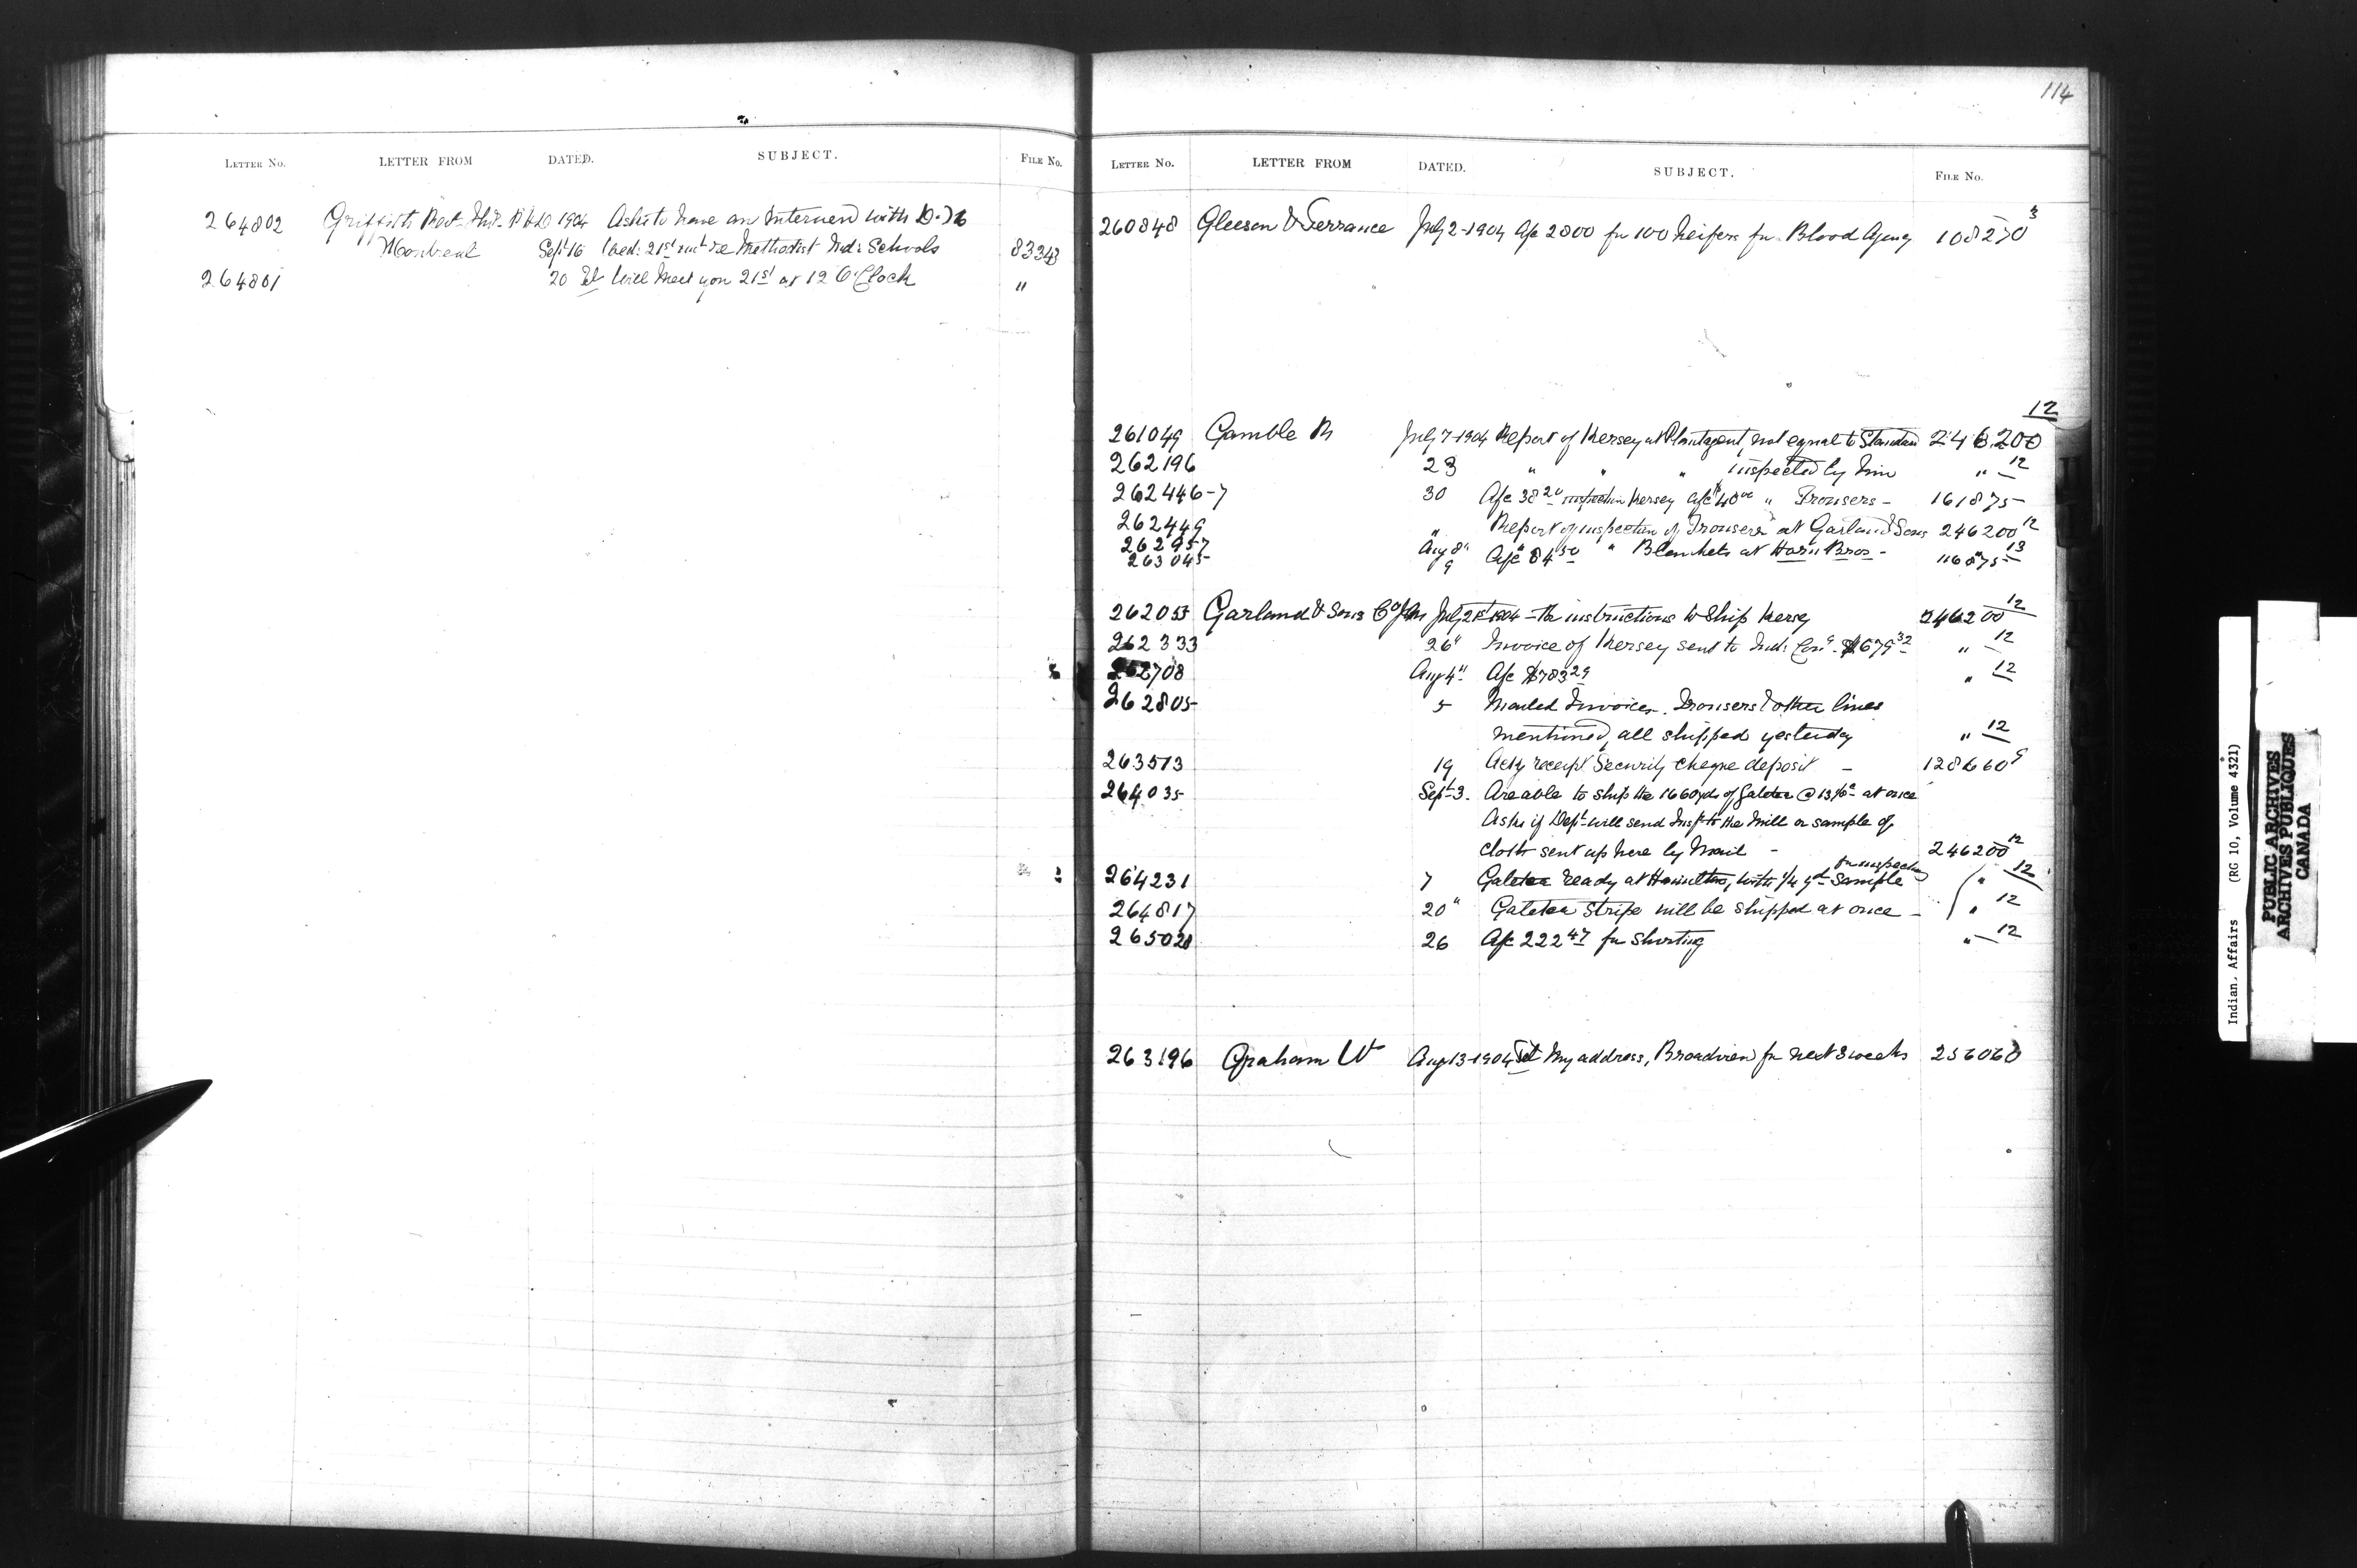 LETTER No. LETTER FROM DATED. SUBJECT. FILE No.
264802 Griffith Rev. Ph.D 1904 Asks to have an Interview with D.
Montreal Sept 16 Wed: 21st inst re Methodist Ind: Schools 83343
264801 20 Tel Will Meet you 21st at 12 O'Clock "
114
LETTER No. LETTER FROM DATED. SUBJECT. FILE No.
260848 Gleeson & Terrance July 2-1904 A/c 2800 for 100 heifers for Blood Agency 108270 3
12
261049 Gamble R July 7-1904 Report of Kersey at Plantagent, not equal to Standard 246.200
262196 23 " " " inspected by him " 12
262446-7 30 A/c 38 20 inspection Kersey a/c $40 00 " Trousers - 161875
262449 " Report of inspection of Trousers at Garland & Sons 246200 12
262957 Aug 8 " " " Blankets at Horn Bros - 13
263045 9 A/c 84 50 116875
262053 Garland & Sons Co Jno July 21st 1904 - Re instructions to Ship Kersey 246200 12
262333 26" Invoice of Kersey sent to Ind: Com. $1679 32 " 12
262708 Aug 4" A/c $783 29 " 12
262805 5 Mailed Invoices. Trousers & other lines
mentioned, all shipped yesterday " 12
263513 19 Ackg receipt Security cheque deposit - 128660 9
264035 Sept 3. Are able to ship the 1660 yds of Galatea @ 13 ½ c at once
Asks if Dept will send Insp. to the Mill or sample of
cloth sent up here by Mail - 246200 12
for inspection
264231 7 Galatea ready at Hamilton, with ¼ yd Sample " 12
264817 20" Galatea Stripe will be shipped at once - " 12
265028 26 A/c 222 47 for Shirting " 12
263196 Graham W Aug 13-1904 Tel My address, Broadview for next 3 weeks 256060
Indian. Affairs (RG 10, Volume 4321)
PUBLIC ARCHIVES
ARCHIVES PUBLIQUES
CANADA